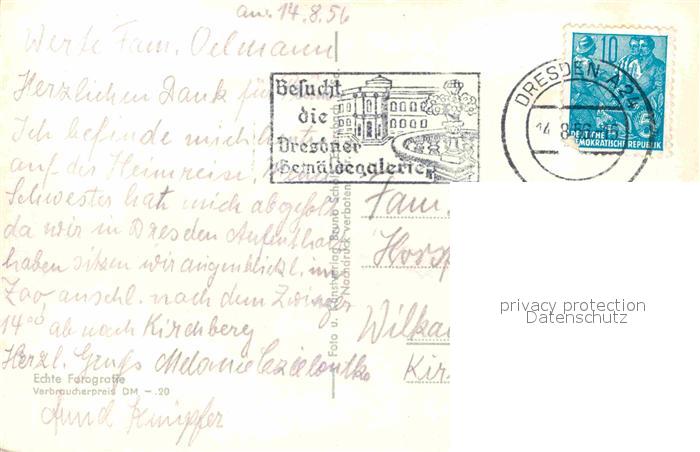 an. 14.8.56
Werte Fam. Oelmann
Herzlichen Dank für
Ich befinde mich
auf der Heimreise,
Schwester hat mich abgeholt
da wir in Dresden Aufenthalt
haben sitzen wir augenblickl. im
Zoo anschl. nach dem Zwinger
14⁰⁰ ab nach Kirchberg
Herzl. Gruß Melanie
Echte Fotografie
Verbraucherpreis DM -.20
Besucht
die
Dresdner
Gemäldegalerie
DRESDEN A24
14.8.56
10
DEUTSCHE
DEMOKRATISCHE REPUBLIK
Foto u. Kunstverlag Bruno
Nachdruck verboten
Fam.
Wilkau
Kir
privacy protection
Datenschutz